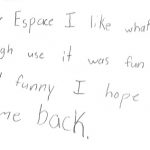 Espace I like what
gh use it was fun
funny I hope
me back.